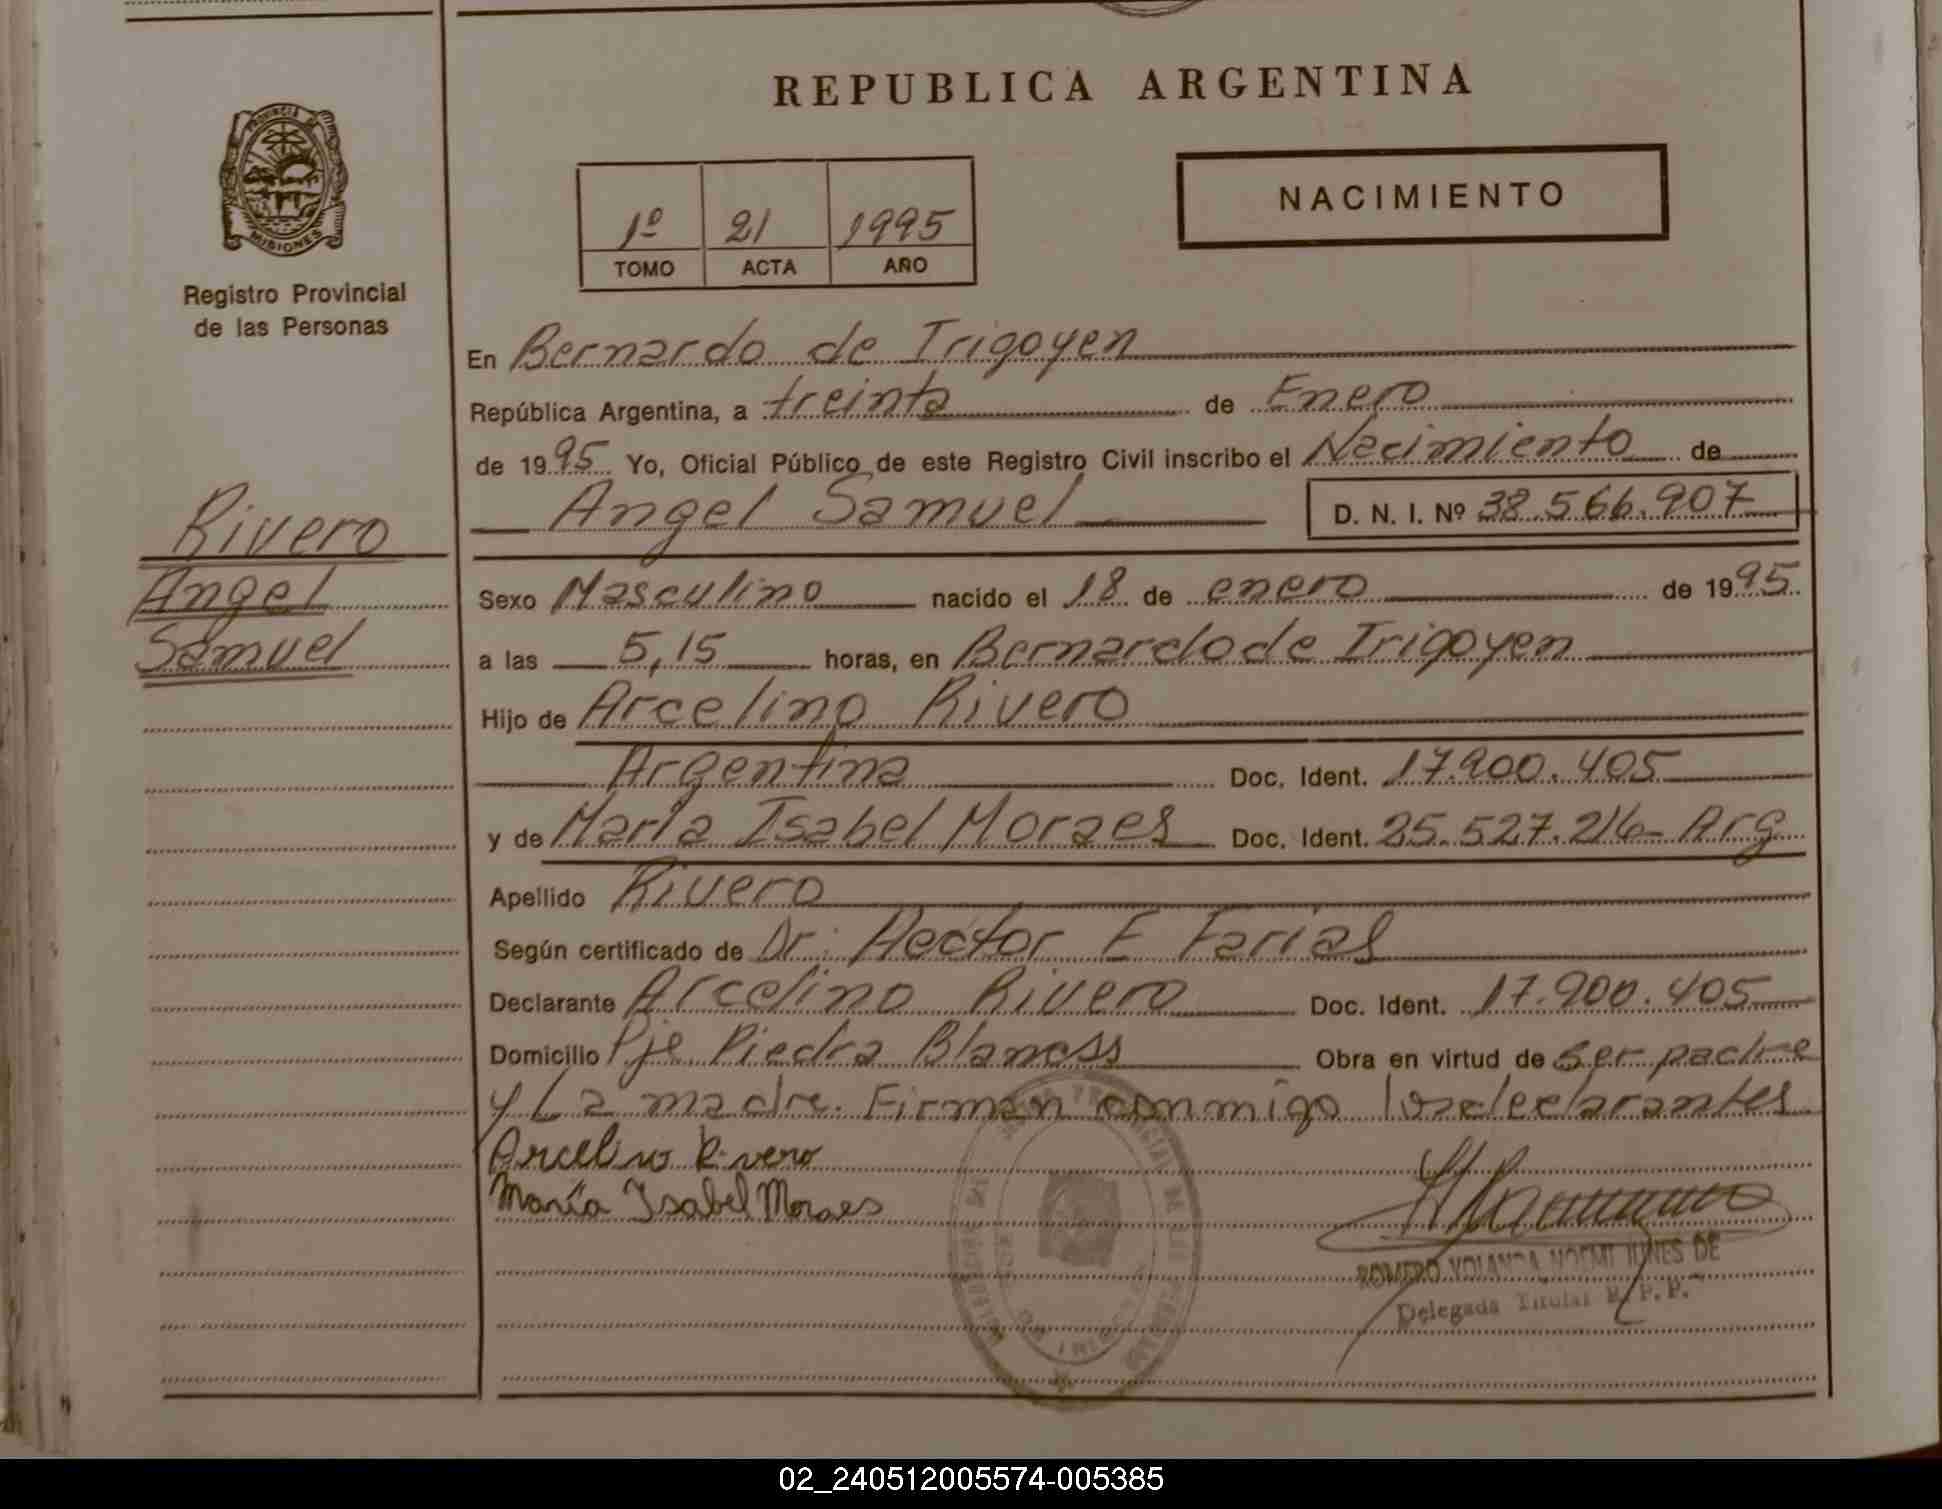 REPUBLICA ARGENTINA
PROVINCIA DE
MISIONES
Registro Provincial
de las Personas
1º 21 1995
TOMO ACTA AÑO
NACIMIENTO
En Bernardo de Irigoyen
República Argentina, a treinta de Enero
de 1995 Yo, Oficial Público de este Registro Civil inscribo el Nacimiento de
Angel Samuel D. N. I. Nº 38.566.907
Rivero
Angel
Samuel
Sexo Masculino nacido el 18 de enero de 1995
a las 5,15 horas, en Bernardo de Irigoyen
Hijo de Arcelino Rivero
Argentina Doc. Ident. 17.900.405
y de María Isabel Moraes Doc. Ident. 25.527.216 - Arg
Apellido Rivero
Según certificado de Dr: Hector E Farias
Declarante Arcelino Rivero Doc. Ident. 17.900.405
Domicilio Pje Piedra Blancas Obra en virtud de ser padre
y La madre. Firman conmigo los declarantes
Arcelino Rivero
María Isabel Moraes
ROMERO YOLANDA NOEMI DE
Delegada Titular R.P.P.
02_240512005574-005385